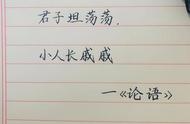 君子坦荡荡，
小人长戚戚
—《论语》